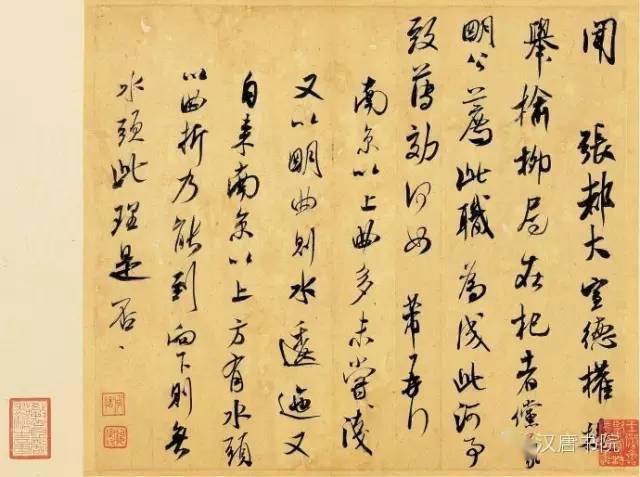 聞 張都大宣德權提
舉榆柳局在杞者儻蒙
明公薦此職為成此河事
致薄効何如 芾再行
南京以上曲多未嘗淺
又以明曲則水逶迤又
自来南京以上方有水頭
以曲折乃能到向下則無
水頭此理是否、
汉唐书院